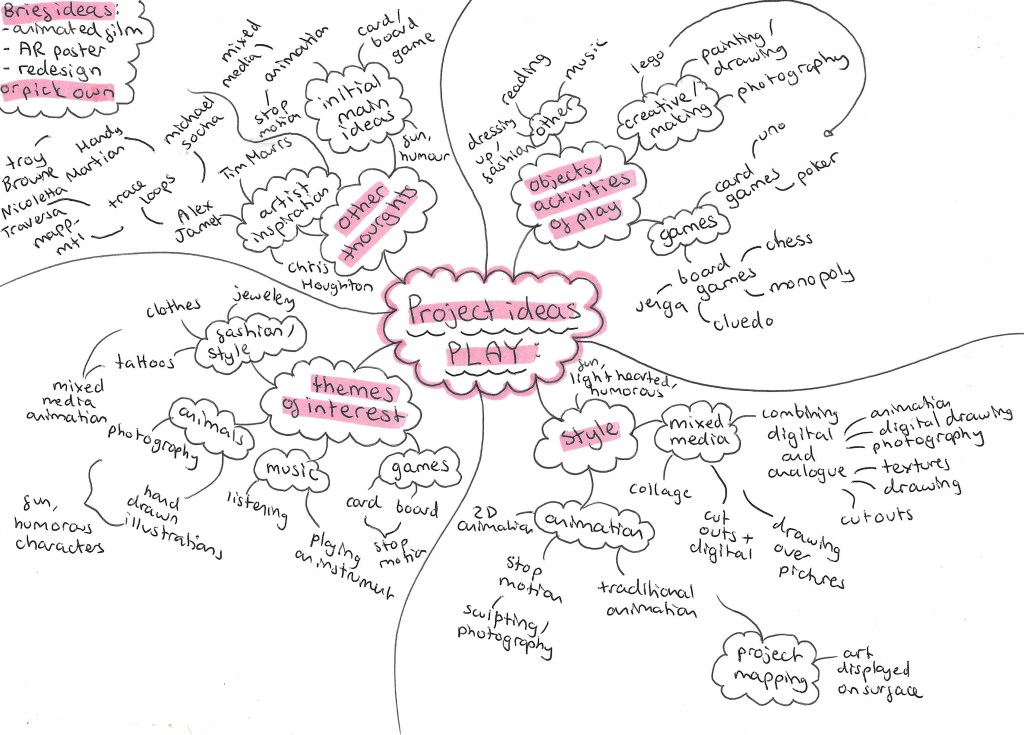 Brief ideas:
- animated film
- AR poster
- redesign
or pick own
mixed
media
animation
card/
board
game
initial
main
ideas
stop
motion
fun,
humour
michael
socha
Tim Marrs
troy
Browne
Handy
Martian
Nicoletta
Traversa
mapp-
mti
trace
loops
Alex
Jamet
artist
inspiration
Chris
Houghton
other
thoughts
reading
music
dressing
up,
fashion
other
lego
painting/
drawing
photography
creative/
making
objects/
activities
of play
uno
poker
card
games
games
board
games
chess
monopoly
jenga
cluedo
Project ideas
PLAY:
clothes
jewelery
fashion/
style
tattoos
mixed
media
animation
themes
of interest
animals
photography
hand
drawn
illustrations
fun,
humorous
characters
music
listening
playing
an instrument
games
card
board
stop
motion
fun,
light hearted,
humorous
style
mixed
media
combining
digital
and
analogue
animation
digital drawing
photography
textures
drawing
cutouts
collage
cut
outs +
digital
drawing
over
pictures
2D
animation
animation
stop
motion
sculpting/
photography
traditional
animation
project
mapping
art
displayed
on surface